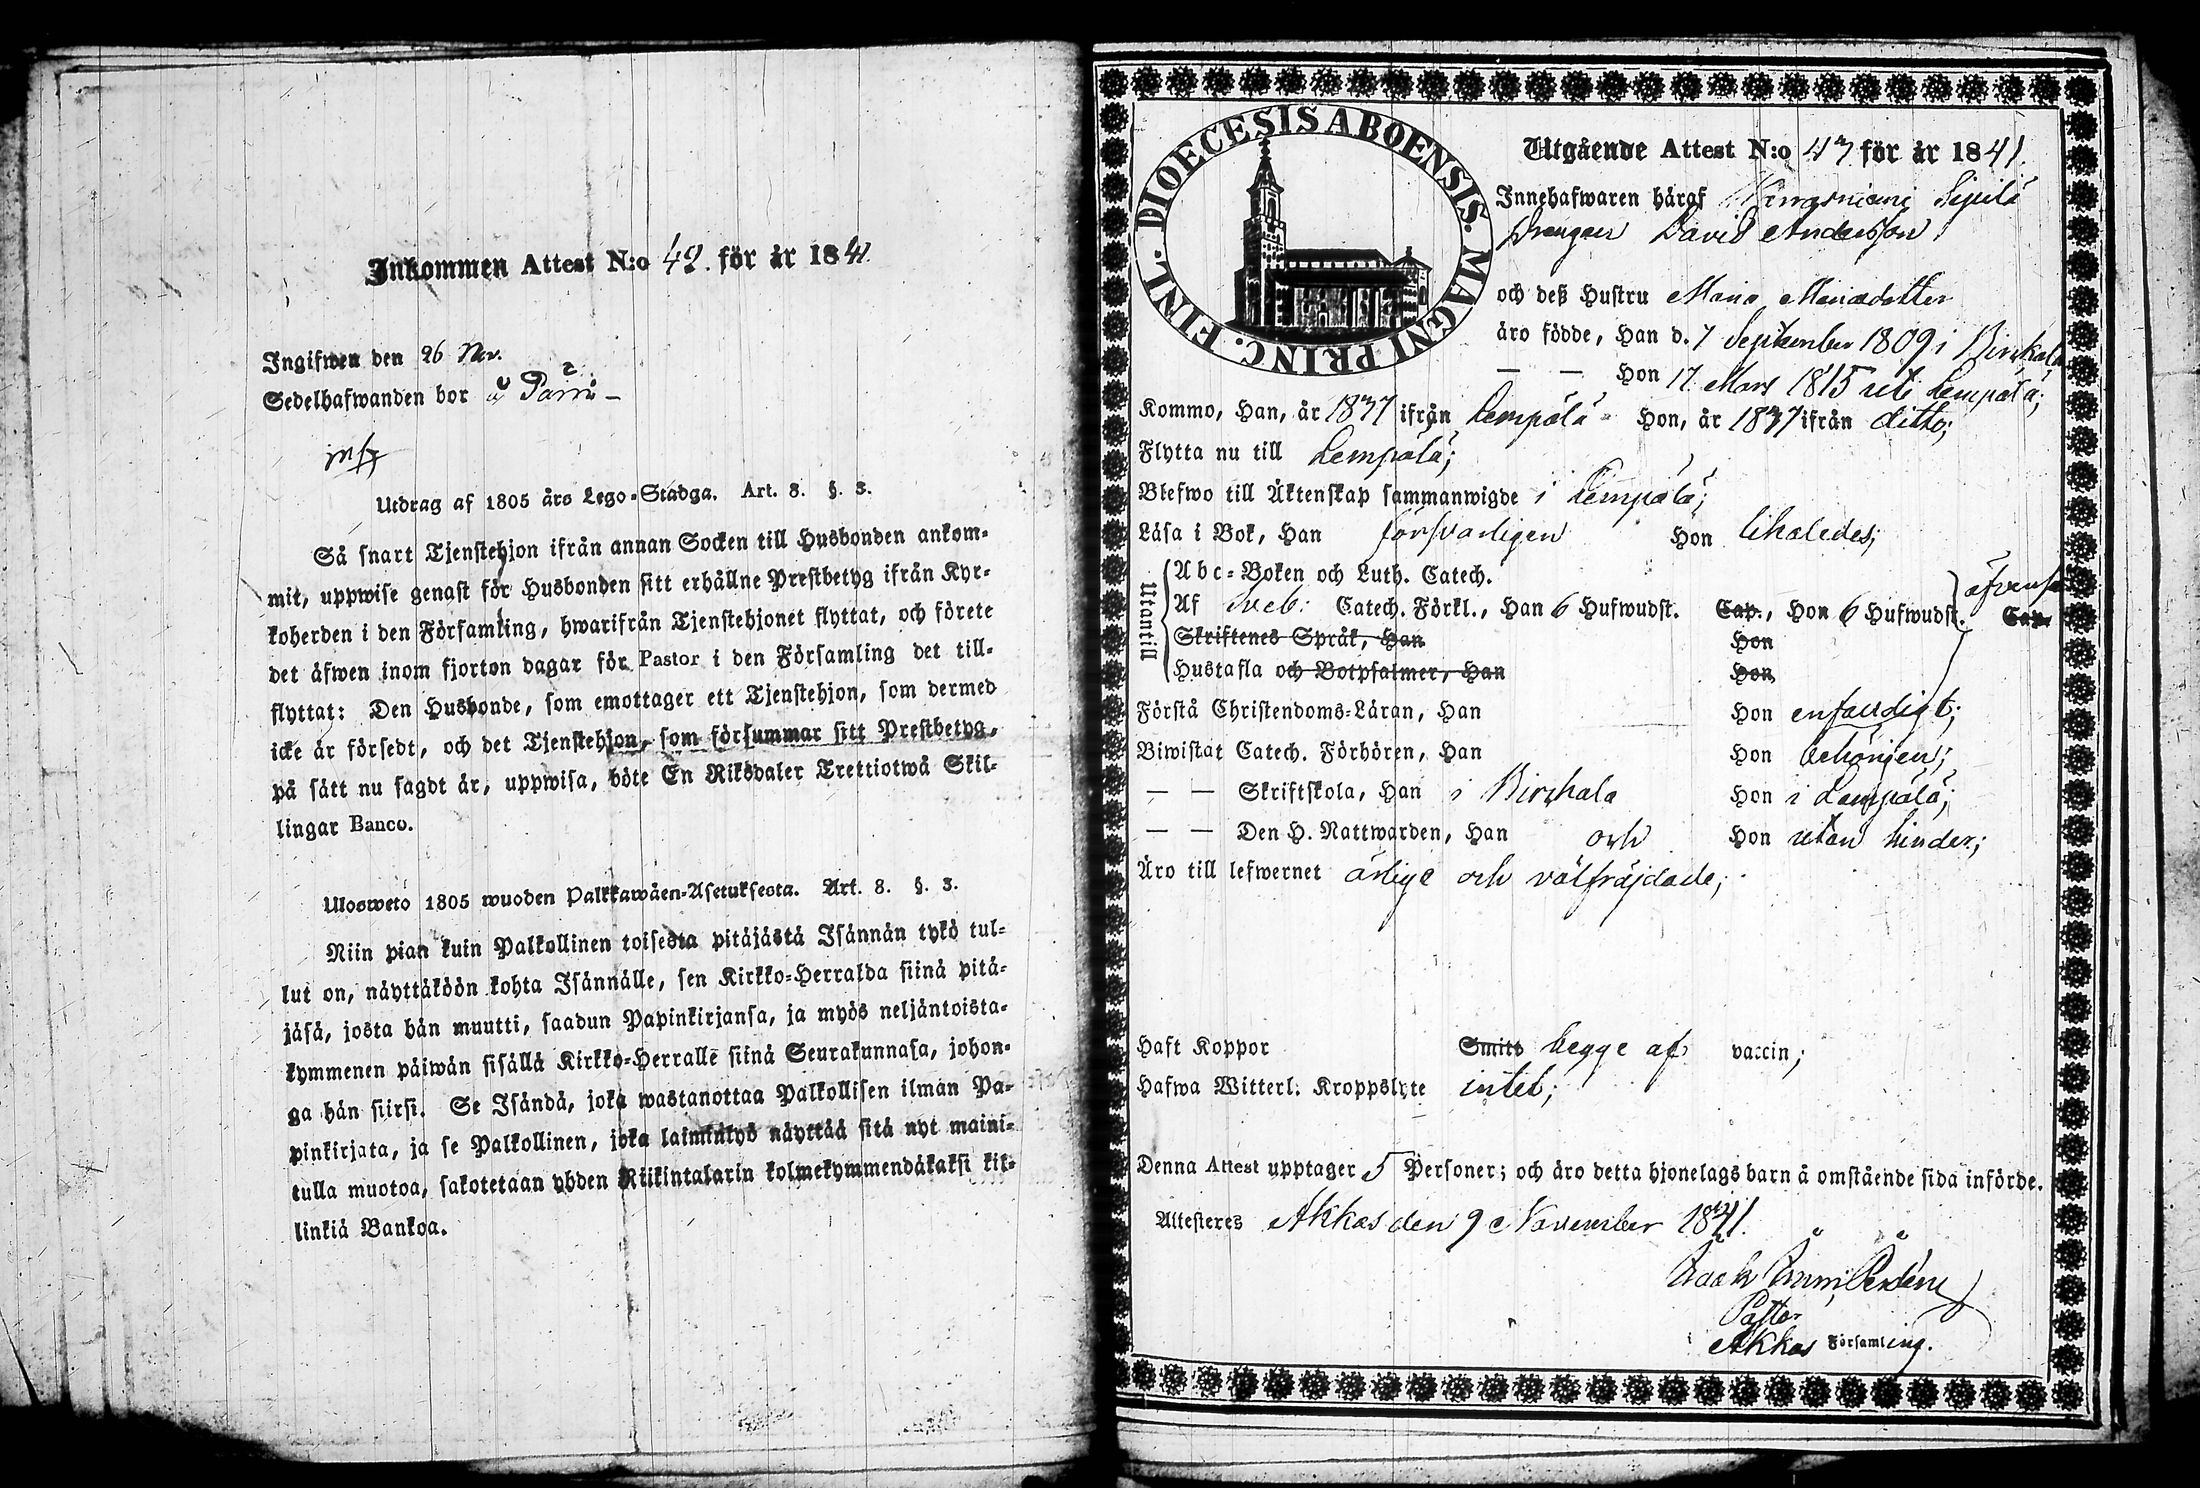 Inkommen Attest N:o 42. för år 1841.
Ingifwen den 26 Nov.
Sedelhafwanden bor å
Utdrag af 1805 års Lego-Stadga. Art. 8. §. 3.
Så snart Tjenstehjon ifrån annan Socken till Husbonden ankom-
mit, uppwise genast för Husbonden sitt erhållne Prestbetyg ifrån Kyr-
koherden i den Församling, hwarifrån Tjenstehjonet flyttat, och förete
det äfwen inom fjorton dagar för Pastor i den Församling det till-
flyttat: Den Husbonde, som emottager ett Tjenstehjon, som dermed
icke är försedt, och det Tjenstehjon, som försummar sitt Prestbetyg,
på sätt nu sagdt är, uppwisa, böte En Riksdaler Trettiotwå Skil-
lingar Banco.
Uloswetö 1805 wuoden Palkkawäen-Asetuksesta. Art. 8. §. 3.
Niin pian kuin Palkollinen toisesta pitäjästä Isännän tykö tul-
lut on, näyttäköön kohta Isännälle, sen Kirkko-Herralda siinä pitä-
jäsä, josta hän muutti, saadun Papinkirjansa, ja myös neljäntoista-
kymmenen päiwän sisällä Kirkko-Herralle siinä Seurakunnasa, johon-
ga hän siirsi. Se Isändä, joka wastanottaa Palkollisen ilman Pa-
pinkirjata, ja se Palkollinen, joka laiminlyö näyttää sitä nyt maini-
tulla muotoa, sakotetaan yhden Riikintalarin kolmekymmendäkaksi kil-
linkiä Bankoa.
DIOECESIS ABOENSIS. MAGNI PRINC. FINL.
Utgående Attest N:o 47 för år 1841.
Innehafwaren häraf Sipilä
Drengen David Andersson
och deß Hustru Maria Mariædotter
äro födde, Han d. 7 September 1809 i Birkala
— — Hon 17 Mars 1815 uti Lempälä;
Kommo, Han, år 1837 ifrån Lempälä Hon, år 1837 ifrån ditto;
Flytta nu till Lempälä;
Blefwo till Äktenskap sammanwigde i Lempälä;
Läsa i Bok, Han försvarligen Hon likaledes;
Utantill
Abc-Boken och Luth. Catech.
Af Sveb: Catech. Förkl., Han 6 Hufwudst. Cap., Hon 6 Hufwudst. Cap.
Skriftenes Språk, Han Hon
Hustafla och Botpsalmer, Han Hon
Förstå Christendoms-Läran, Han Hon enfaldigt;
Biwistat Catech. Förhören, Han Hon behörigen;
— — Skriftskola, Han i Birkala Hon i Lempälä;
— — Den H. Nattwarden, Han och Hon utan hinder;
Äro till lefwernet ärlige och välfräjdade;
Haft Koppor Smitt begge af vaccin;
Hafwa Witterl. Kroppslyte intet;
Denna Attest upptager 5 Personer; och äro detta hjonelags barn å omstående sida införde.
Attesteres Akkas den 9 November 1841.
Pastor
i Akkas Församling.